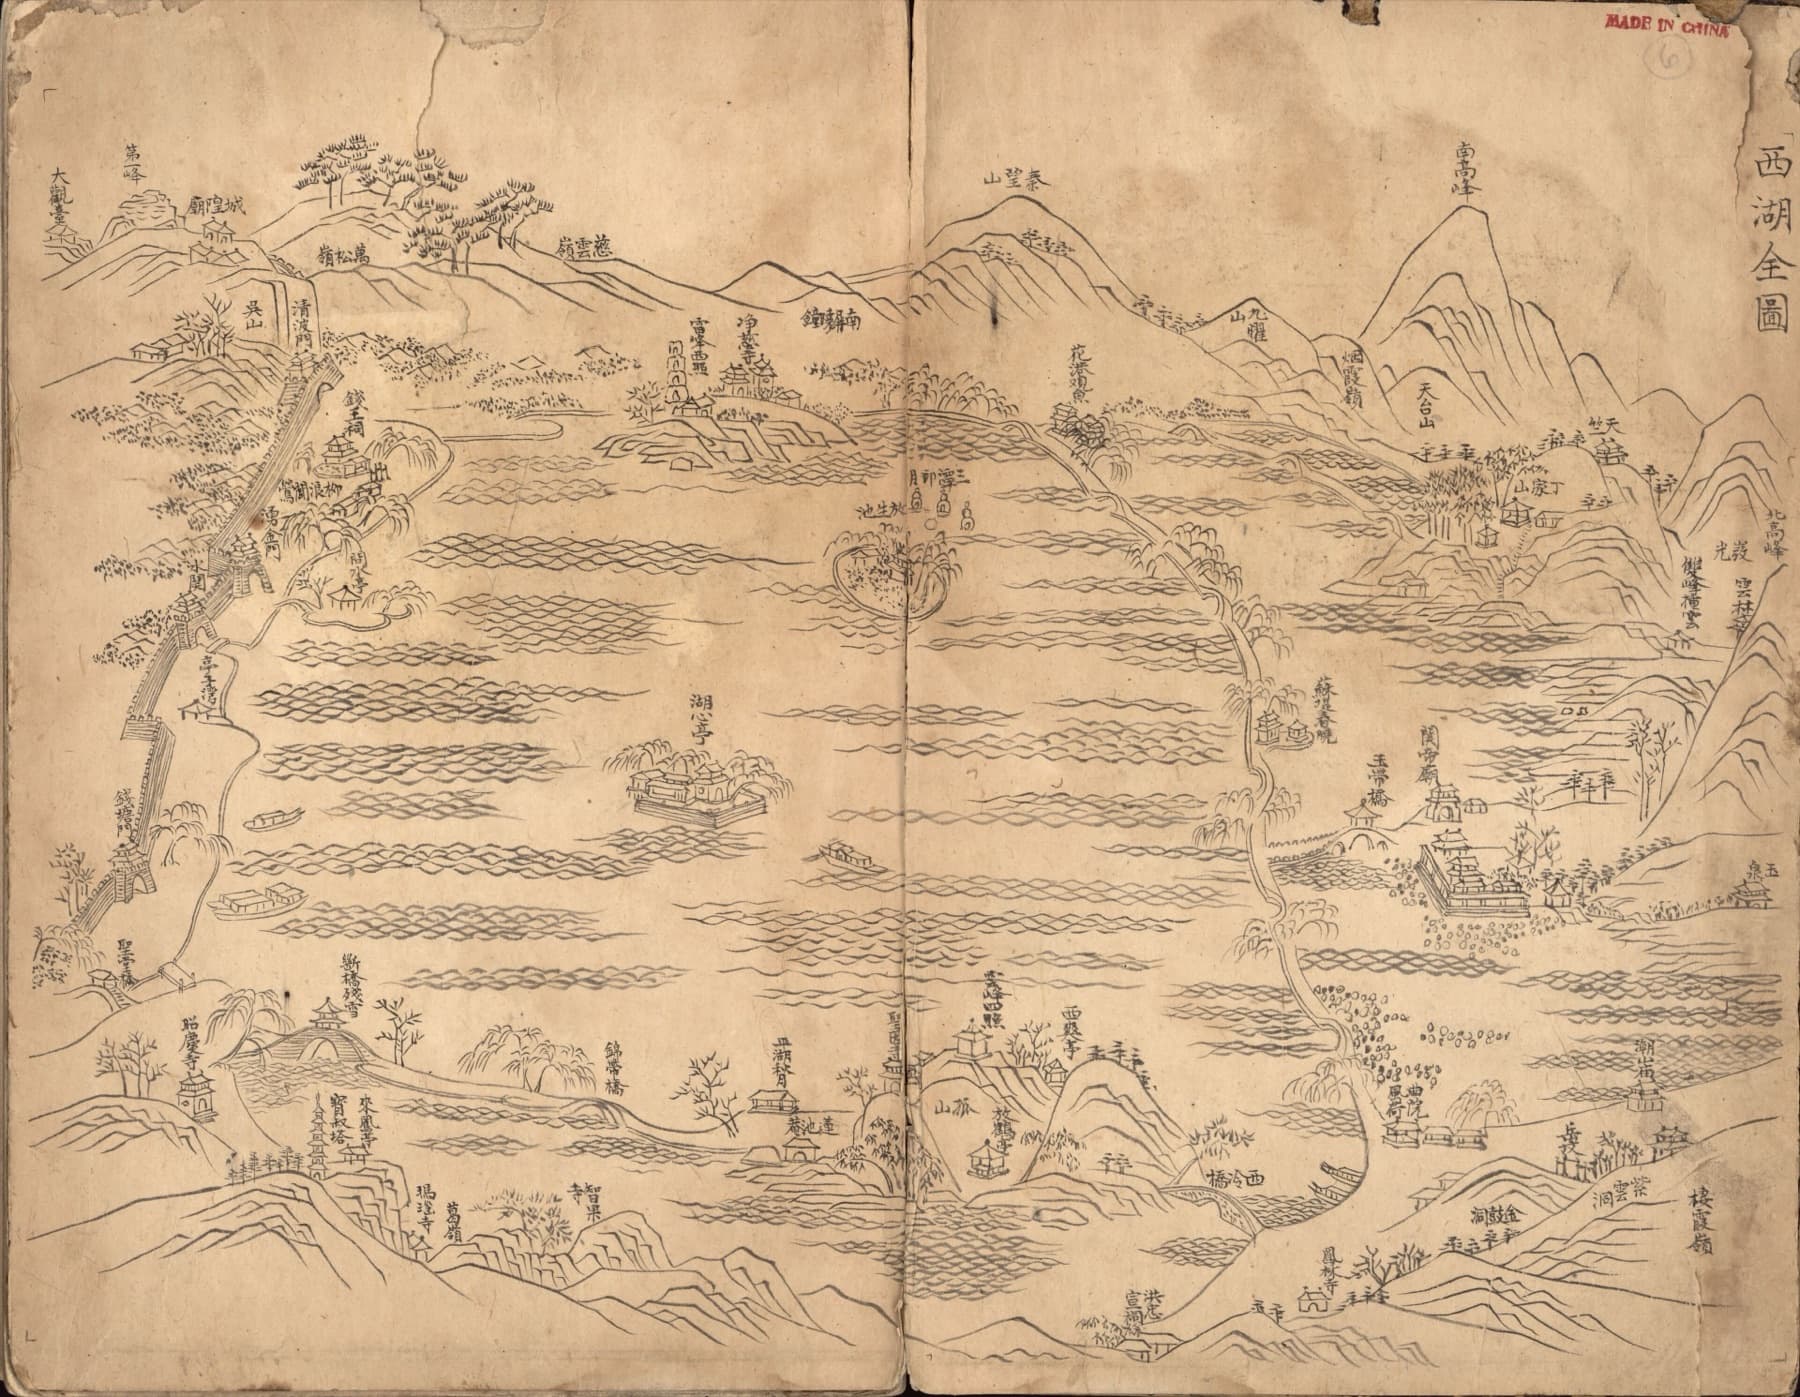 MADE IN CHINA
6
西湖全圖
南高峰
秦望山
九曜山
烟霞嶺
天台山
天竺
丁家山
北高峰
韜光
雲林寺
雙峰插雲
花港觀魚
三潭印月
放生池
蘇堤春曉
玉帶橋
關帝廟
玉泉
曲院風荷
岳坟
紫雲洞
金鼓洞
棲霞嶺
鳳林寺
洪忠宣祠
西泠橋
孤山
放鶴亭
西爽亭
四照
聖因寺
南屏晚鐘
净慈寺
雷峰西照
慈雲嶺
萬松嶺
城隍廟
第一峰
大觀臺
吳山
清波門
錢王祠
柳浪聞鶯
湧金門
問水亭
水関
亭子灣
湖心亭
錢塘門
聖塘橋
昭慶寺
斷橋殘雪
錦帶橋
平湖秋月
蓮池菴
寶叔塔
來鳳亭
瑪瑙寺
葛嶺
智果寺